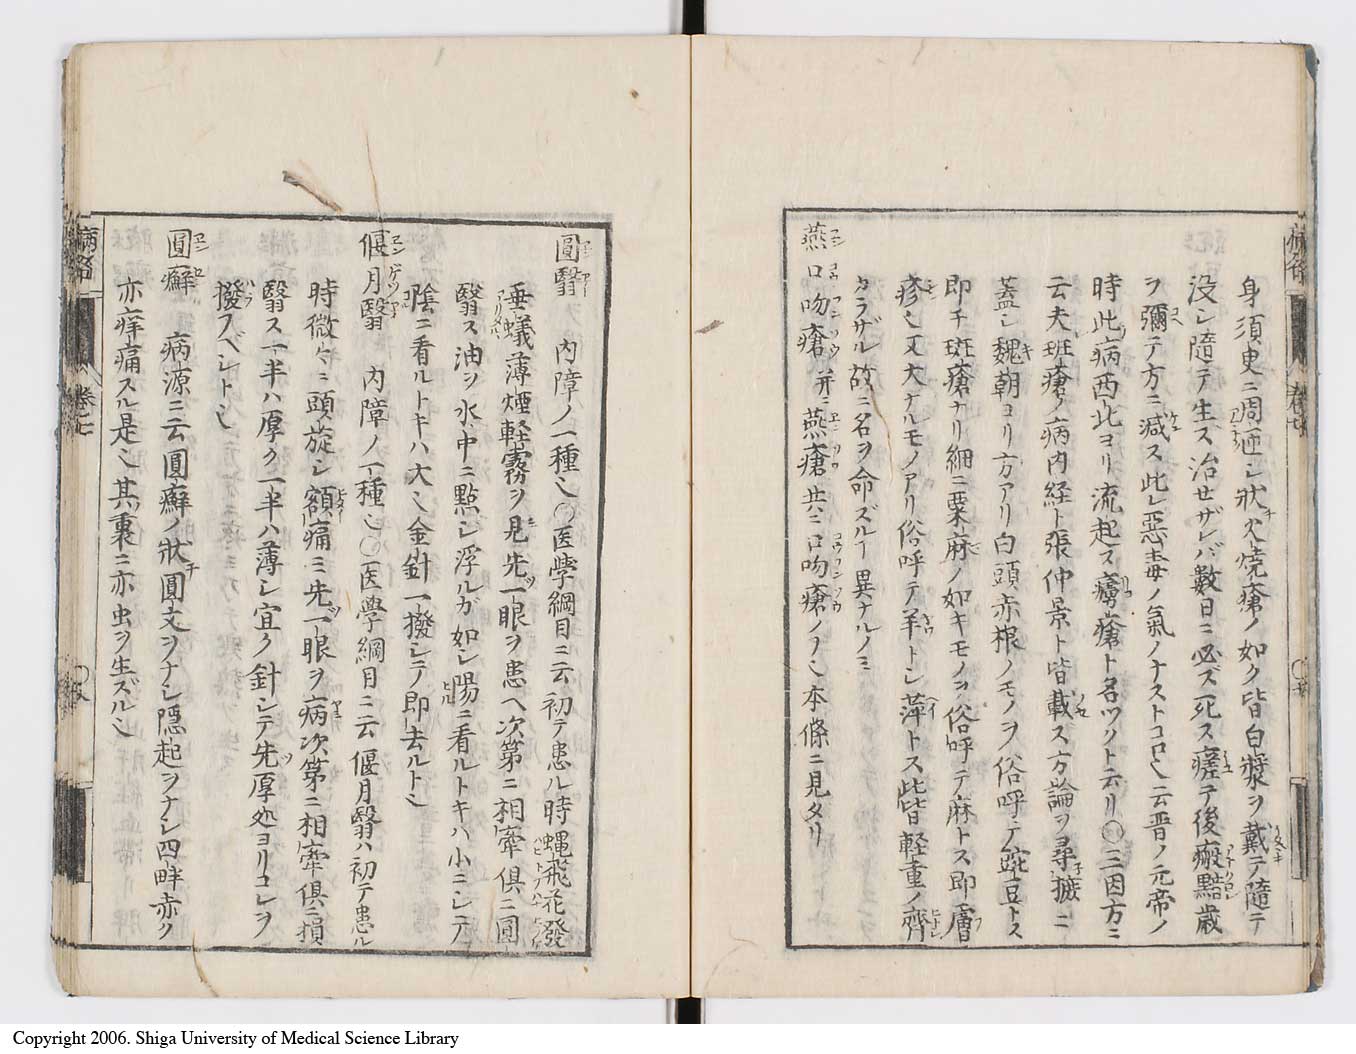 身須臾ニ周匝シ狀火燒瘡ノ如ク皆白漿ヲ戴テ隨テ
没シ隨テ生ス治せザレバ數日ニ必ズ死ス瘥テ後瘢黯歳
ヲ彌テ方ニ减ス此レ惡毒ノ氣ノナストコロ也云晋ノ元帝ノ
時此病西北ヨリ流起ス虜瘡ト名ヅクト云リ〇三因方ニ
云夫斑瘡ノ病内経ト張仲景ト皆載ス方論ヲ尋摭ニ
蓋シ魏朝ヨリ方アリ白頭赤根ノモノヲ俗呼テ豌豆トス
即チ斑瘡ナリ細ニ粟麻ノ如キモノヲ俗呼テ麻トス即膚
疹也又大ナルモノアリ俗呼テ羊トシ萍トス此皆軽重ノ齊
カラザル故ニ名ヲ命ズルヿ異ナルノミ
燕口吻瘡 并ニ燕瘡共ニ口吻瘡ノヿ也本條ニ見タリ
圓翳 内障ノ一種也〇医學綱目ニ云初テ患ル時蝿飛花發
垂蟻薄煙軽霧ヲ見先一眼ヲ患ヘ次第ニ相牽俱ニ圓
翳ス油ヲ水中ニ點シ浮ルガ如シ陽ニ看ルトキハ小ニシテ
陰ニ看ルトキハ大也金針一撥シテ即去ルト也
偃月翳 内障ノ一種也〇医學綱目ニ云偃月翳ハ初テ患ル
時微々ニ頭旋シ額痛ミ先一眼ヲ病次第ニ相牽俱ニ損
翳ス一半ハ厚ク一半ハ薄シ宜ク針シテ先厚処ヨリコレヲ
撥フベシト也
圓癬 病源ニ云圓癬ノ狀圓文ヲナシ隠起ヲナシ四畔赤ク
亦痒痛スル是也其裏ニ亦虫ヲ生ズル也
卷七